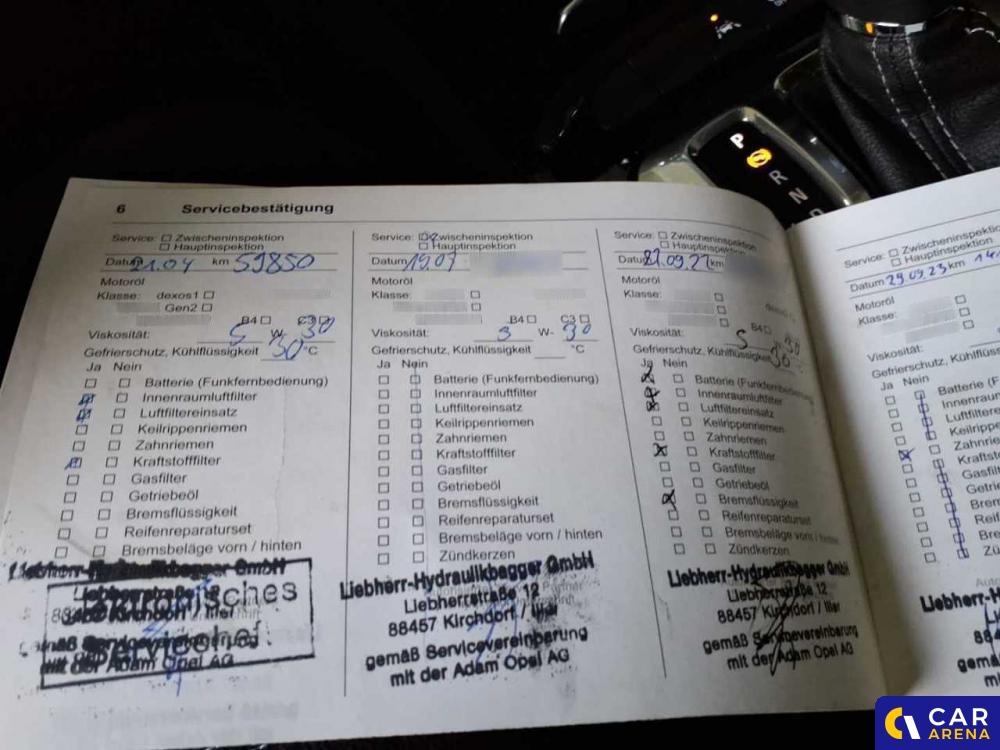 6 Servicebestätigung
Service: Zwischeninspektion
Hauptinspektion
Datum 21.04 km 59850
Motoröl
Klasse: dexos1
Gen2
B4 C3
Viskosität: 5 W- 30
Gefrierschutz, Kühlflüssigkeit 30 °C
Ja Nein
Batterie (Funkfernbedienung)
Innenraumluftfilter
Luftfiltereinsatz
Keilrippenriemen
Zahnriemen
Kraftstofffilter
Gasfilter
Getriebeöl
Bremsflüssigkeit
Reifenreparaturset
Bremsbeläge vorn / hinten
Liebherr-Hydraulikbagger GmbH
mit der Adam Opel AG
Service: Zwischeninspektion
Hauptinspektion
Datum 19.07
Motoröl
Klasse:
B4 C3
Viskosität: W- 30
Gefrierschutz, Kühlflüssigkeit °C
Ja Nein
Batterie (Funkfernbedienung)
Innenraumluftfilter
Luftfiltereinsatz
Keilrippenriemen
Zahnriemen
Kraftstofffilter
Gasfilter
Getriebeöl
Bremsflüssigkeit
Reifenreparaturset
Bremsbeläge vorn / hinten
Zündkerzen
Liebherr-Hydraulikbagger GmbH
Liebherrstraße 12
88457 Kirchdorf / Iller
gemäß Servicevereinbarung
mit der Adam Opel AG
Service: Zwischeninspektion
Hauptinspektion
km
Motoröl
Klasse:
B4
Viskosität: 5 30
Gefrierschutz, Kühlflüssigkeit 30
Ja Nein
Batterie (Funkfernbedienung)
Innenraumluftfilter
Luftfiltereinsatz
Keilrippenriemen
Zahnriemen
Kraftstofffilter
Gasfilter
Getriebeöl
Bremsflüssigkeit
Reifenreparaturset
Bremsbeläge vorn / hinten
Zündkerzen
Liebherr-Hydraulikbagger GmbH
Liebherrstraße 12
88457 Kirchdorf / Iller
gemäß Servicevereinbarung
mit der Adam Opel AG
Service:
Zwischeninspektion
Hauptinspektion
Datum 29.09.23 km
Motoröl
Klasse:
Viskosität:
Gefrierschutz, Kühlflüss
Ja Nein
Batterie (F
Innenraum
Luftfilter
Keilripp
Zahnri
Krafts
Gasf
Getri
Brem
Reif
Br
Zü
Liebherr-H
P
R
N
CAR
ARENA